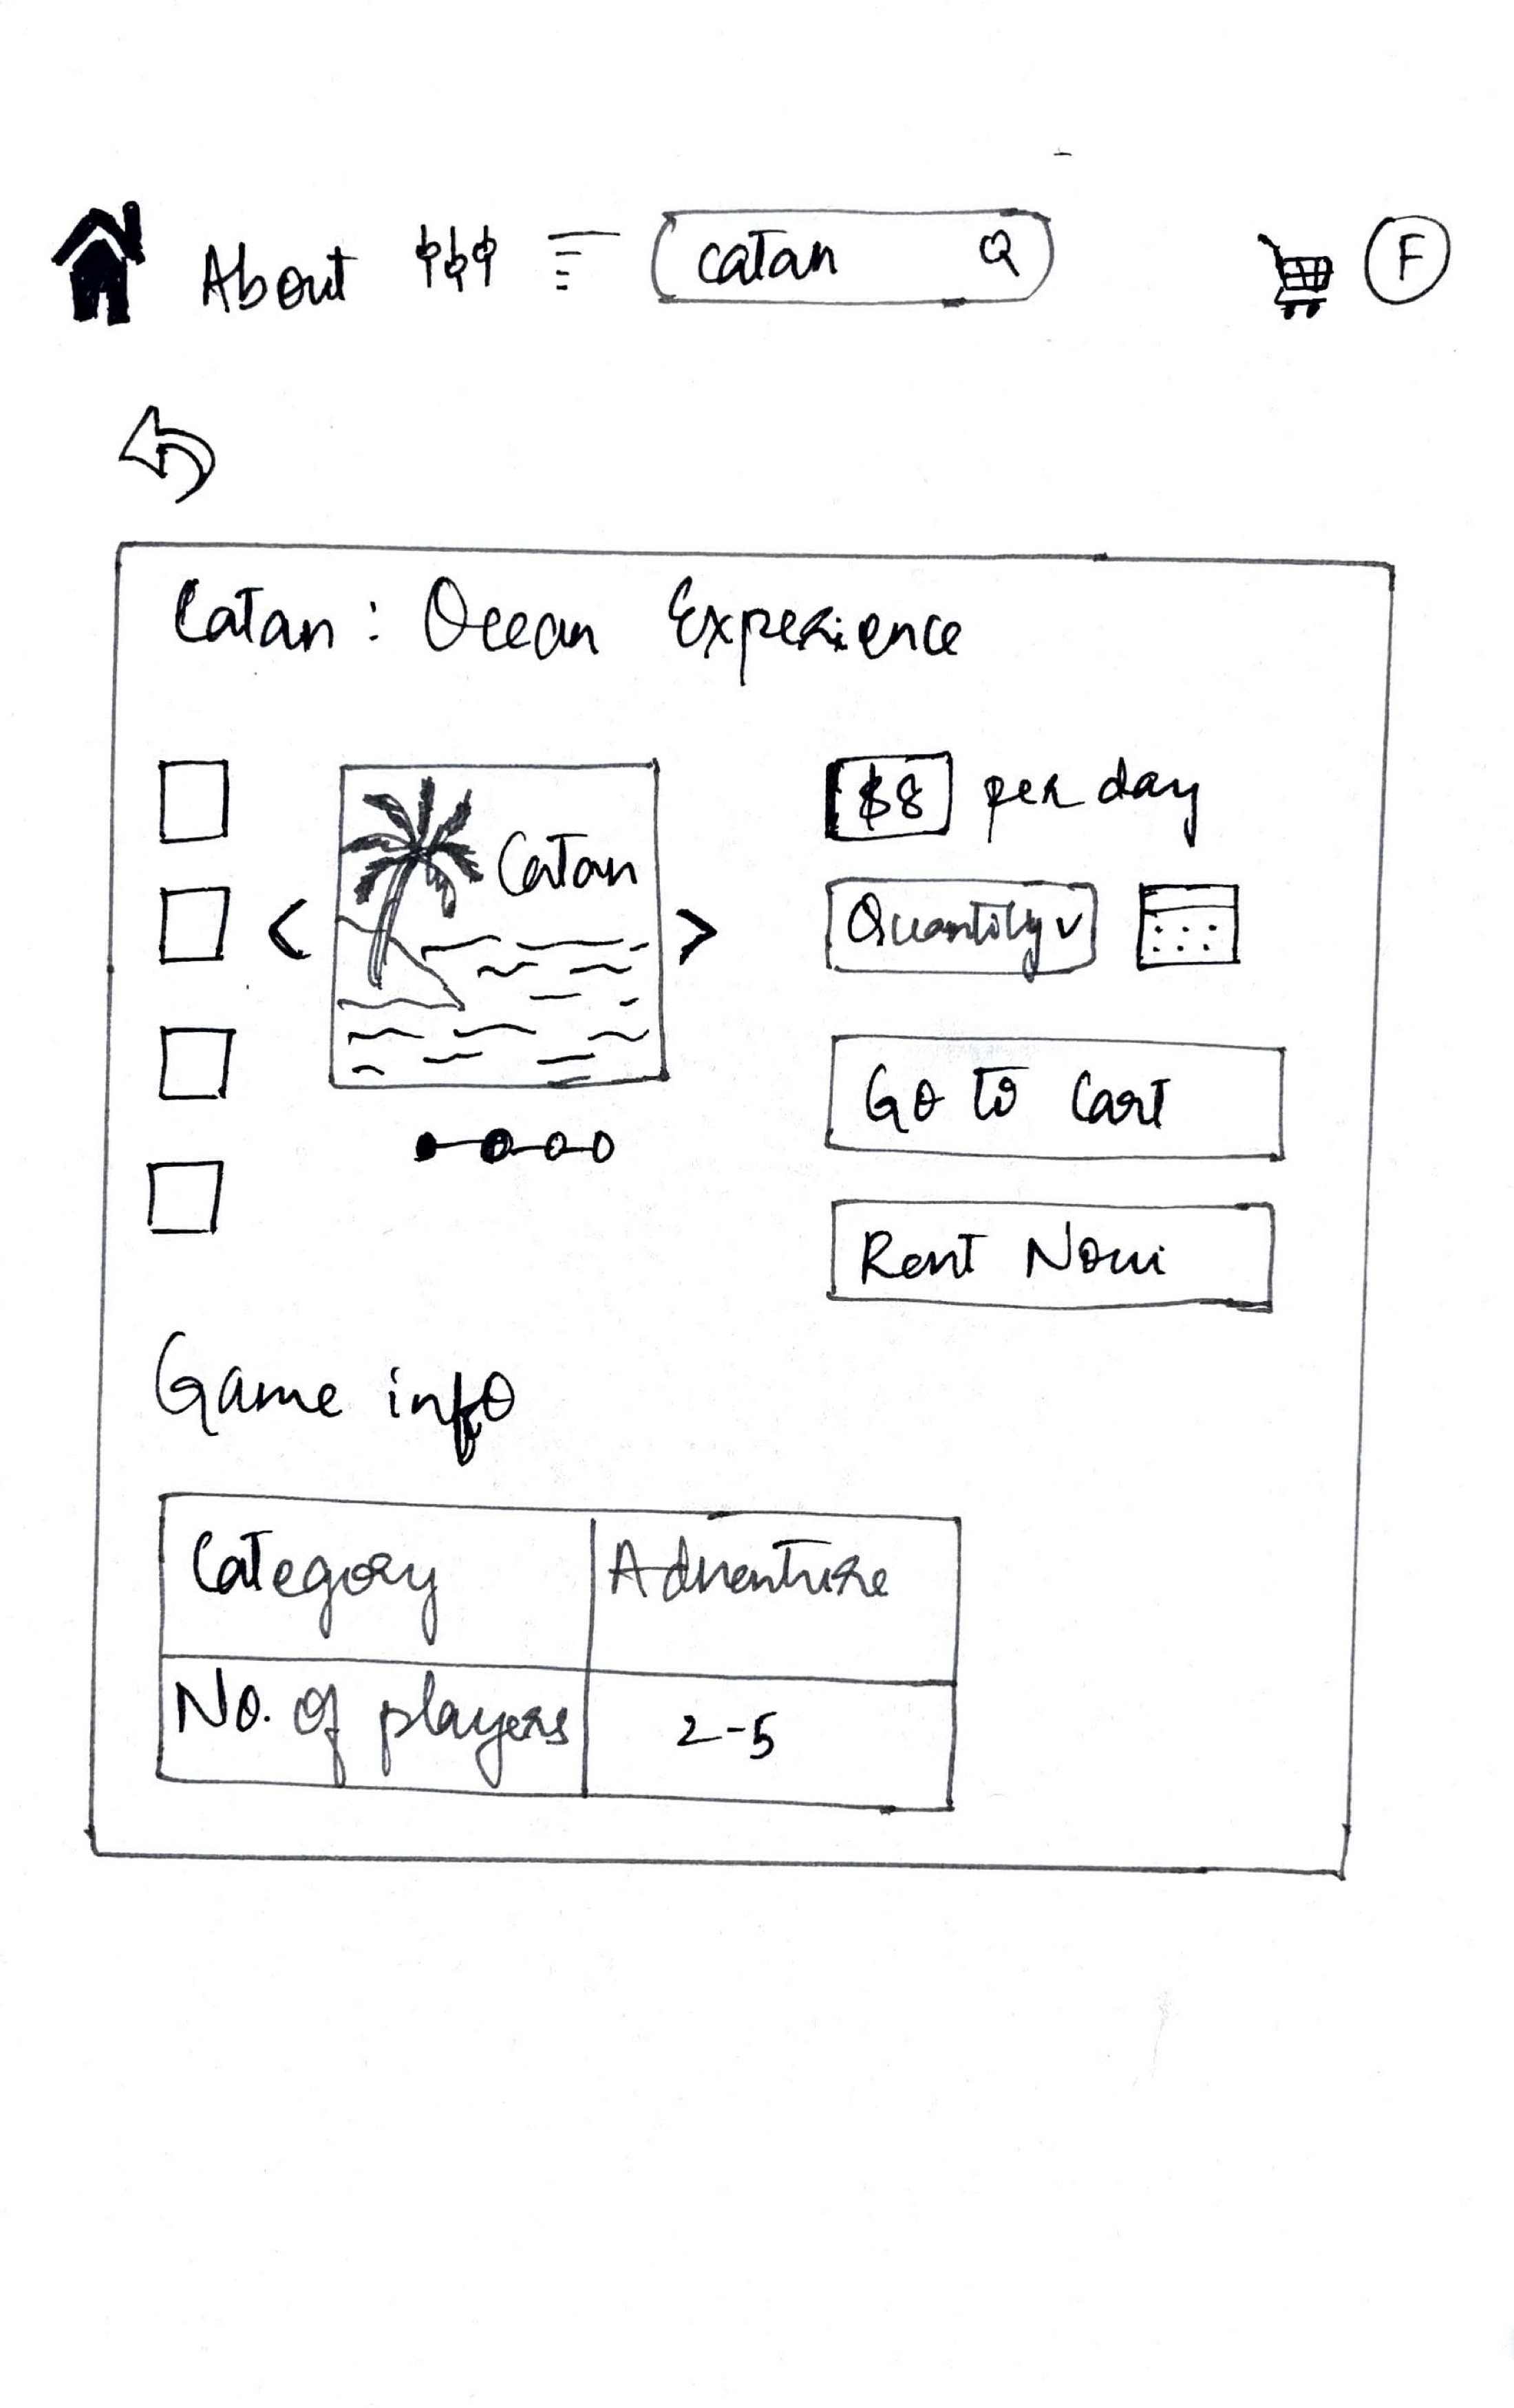 About catan F
Catan: Ocean Experience
$8 per day
Catan
Quantity
Go to Cart
Rent Now
Game info
Category Adventure
No. of players 2-5